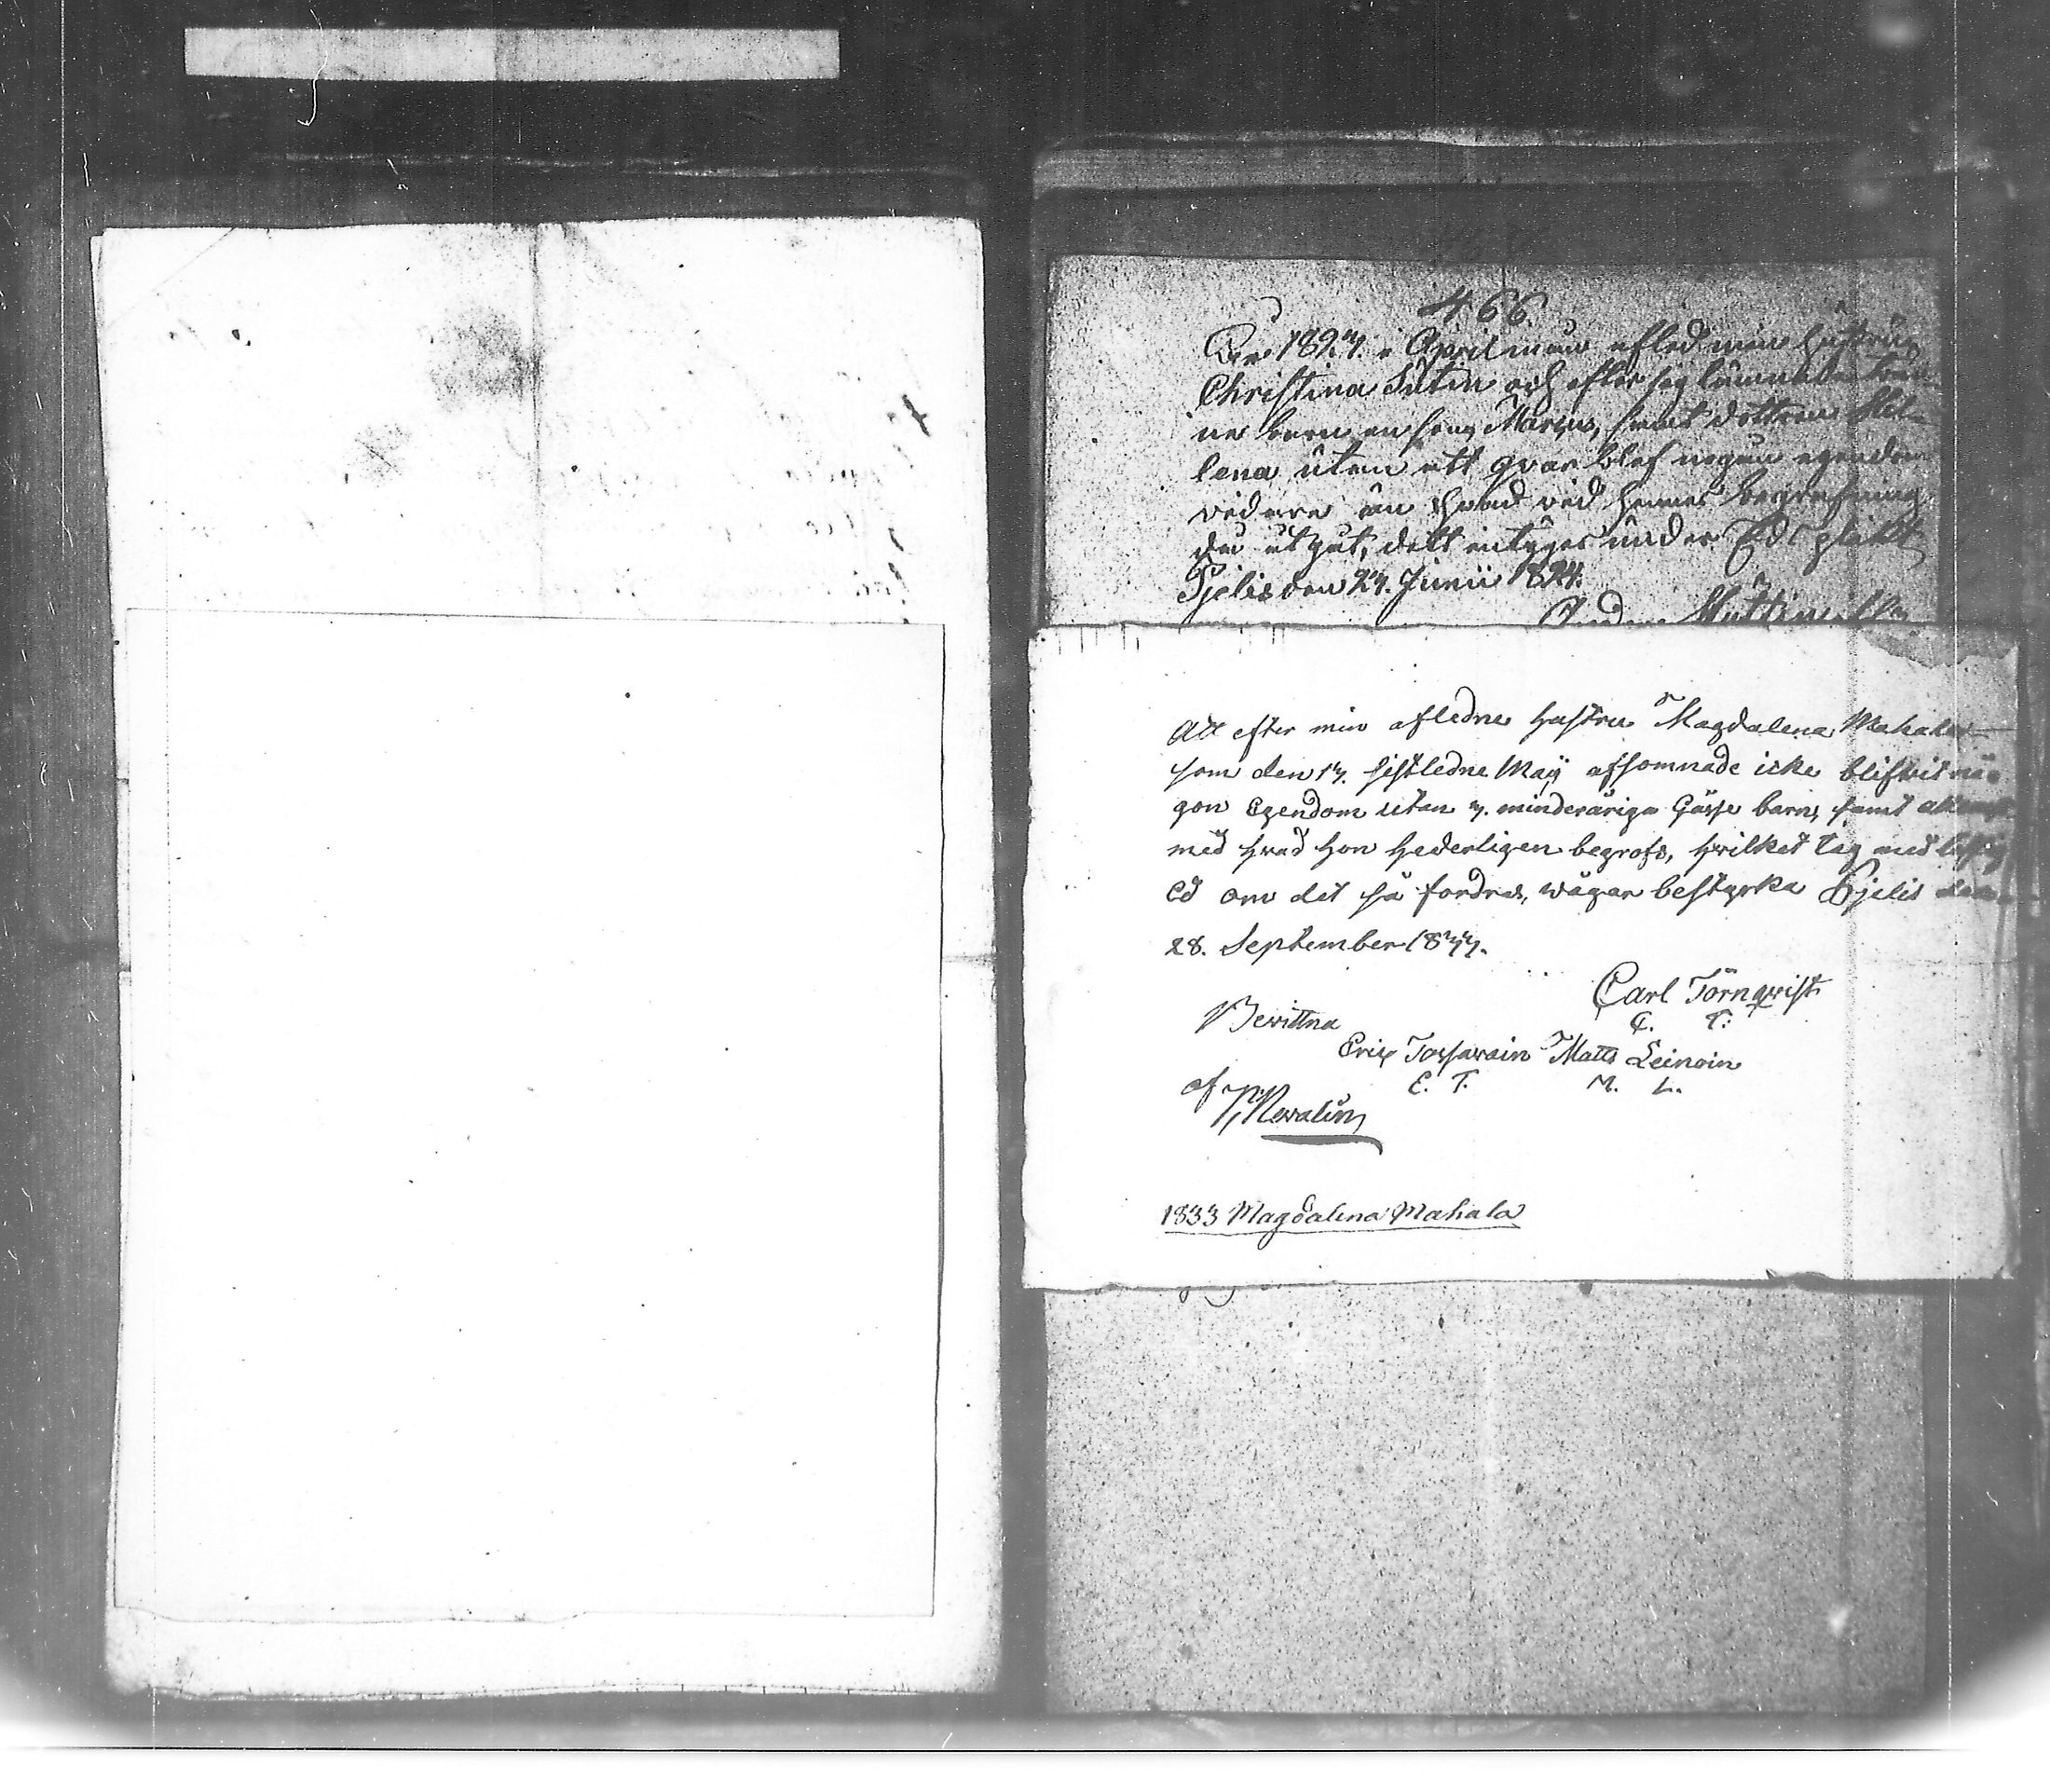 466
1824 i April afled min hustru
Christina Sutin och efter sig lämnade
ne barn en son samt dottren Hel-
lena utan att qvar blef någon egendom
vidare än hvad vid hennes begrafning
utgut, dett intygas under Ed plikt
Pjelis den 24. Junii 1824.
Att efter min afledne hustru Magdalena Mahala
som den 17. sistledne Maÿ afsomnade icke blifvit nå
gon Egendom utan minderåriga Gåsse barn, samt
med hvad hon hederligen begrofs, hvilket Tag med
Ed om det så fordras, wågar bestyrka Bjelis den
28. September
Carl Törnqwist
C. T.
Bewittna
Eric Matts Leinoin
E. T. M. L.
af
1833 Magdalena Mahala